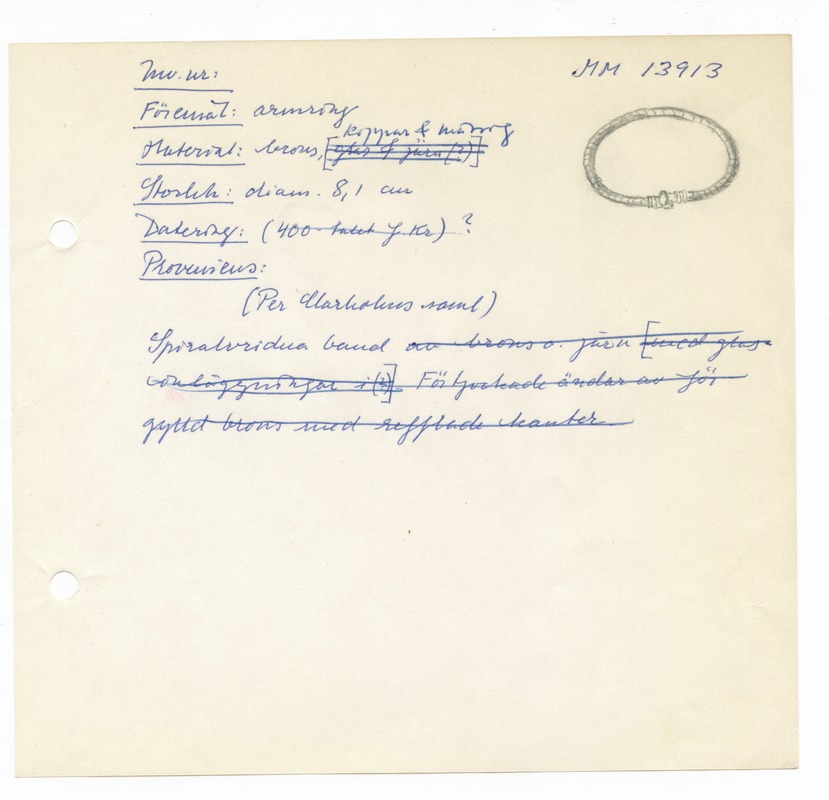 Inv.nr: MM 13913
Föremål: armring
koppar & mässing
Material: brons, [glas & järn (?)]
Storlek: diam. 8,1 cm
Datering: (400-talet f Kr) ?
Proveniens:
(Per Ekarholms saml)
Spiralvridna band av brons o. järn [med glas-
inläggningar i (?)]. Förtjockade ändar av för-
gylld brons med refflade kanter.